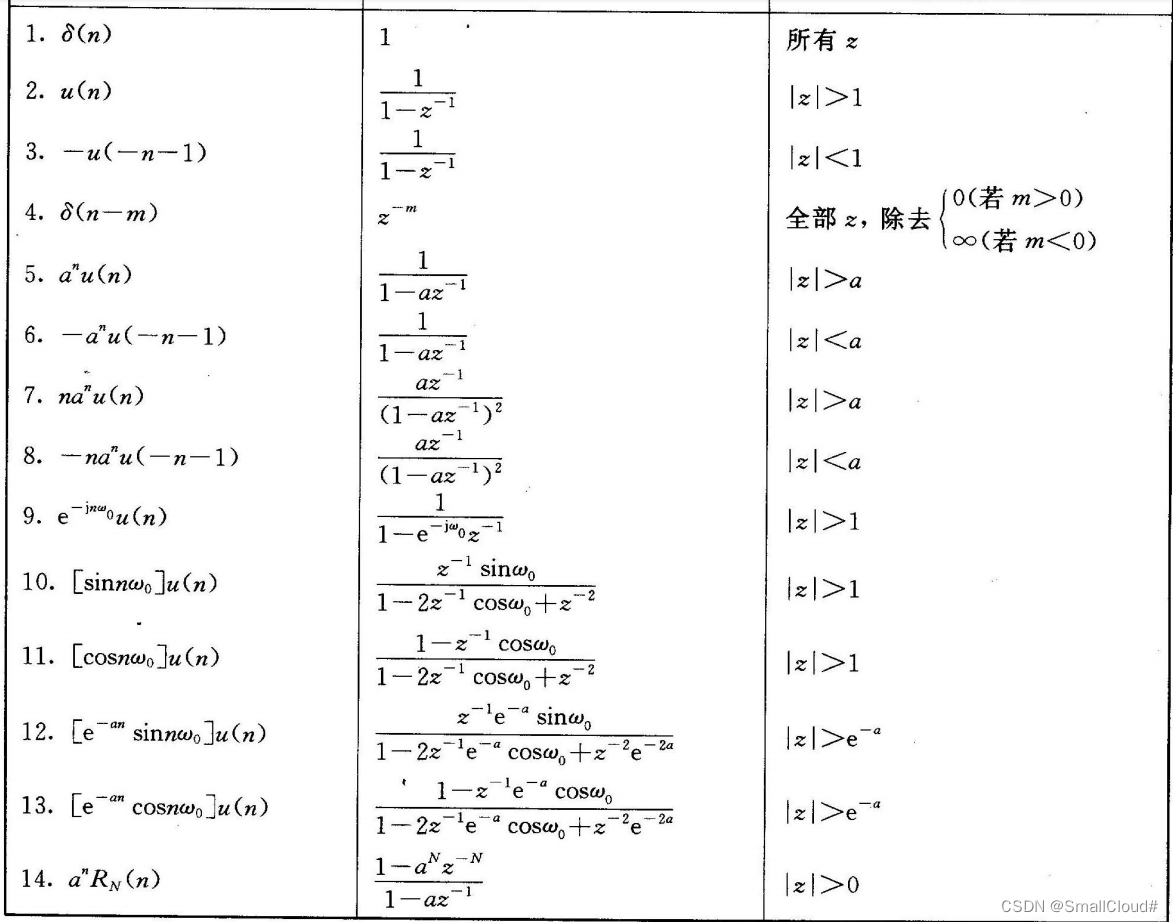 1. δ(n) 1 所有 z
2. u(n) \frac{1}{1-z^{-1}} |z|>1
3. -u(-n-1) \frac{1}{1-z^{-1}} |z|<1
4. δ(n-m) z^{-m} 全部 z, 除去 { 0(若 m>0)
∞(若 m<0)
5. a^n u(n) \frac{1}{1-az^{-1}} |z|>a
6. -a^n u(-n-1) \frac{1}{1-az^{-1}} |z|<a
7. na^n u(n) \frac{az^{-1}}{(1-az^{-1})^2} |z|>a
8. -na^n u(-n-1) \frac{az^{-1}}{(1-az^{-1})^2} |z|<a
9. e^{-jnω_0} u(n) \frac{1}{1-e^{-jω_0}z^{-1}} |z|>1
10. [sinnω_0]u(n) \frac{z^{-1} sinω_0}{1-2z^{-1} cosω_0+z^{-2}} |z|>1
11. [cosnω_0]u(n) \frac{1-z^{-1} cosω_0}{1-2z^{-1} cosω_0+z^{-2}} |z|>1
12. [e^{-an} sinnω_0]u(n) \frac{z^{-1}e^{-a} sinω_0}{1-2z^{-1}e^{-a} cosω_0+z^{-2}e^{-2a}} |z|>e^{-a}
13. [e^{-an} cosnω_0]u(n) \frac{1-z^{-1}e^{-a} cosω_0}{1-2z^{-1}e^{-a} cosω_0+z^{-2}e^{-2a}} |z|>e^{-a}
14. a^n R_N(n) \frac{1-a^N z^{-N}}{1-az^{-1}} |z|>0
CSDN @SmallCloud#